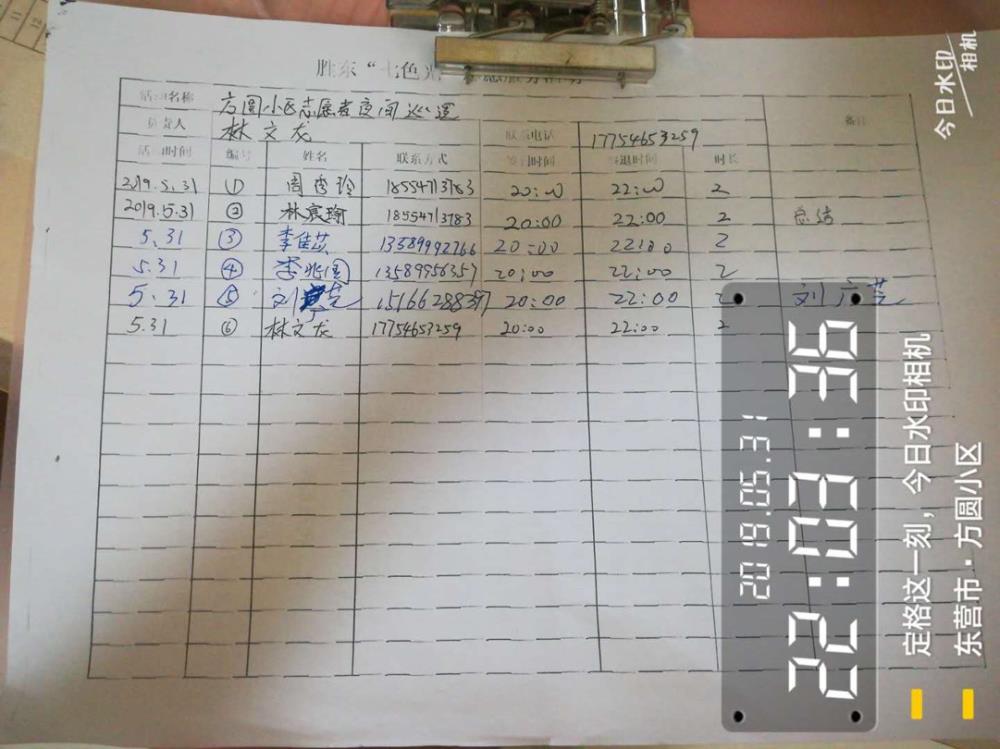 胜东“七色光”志愿服务活动
活动名称 方圆小区志愿者夜间巡逻 备注
负责人 林文龙 联系电话 17754653259
活动时间 编号 姓名 联系方式 签到时间 签退时间 时长
2019.5.31 ① 周秀玲 18554713783 20:00 22:00 2
2019.5.31 ② 林宸瑜 18554713783 20:00 22:00 2 总结
5.31 ③ 李佳芸 13589992766 20:00 22:00 2
5.31 ④ 李兆国 13589956357 20:00 22:00 2
5.31 ⑤ 刘 芝 15166288397 20:00 22:00 2 刘广芝
5.31 ⑥ 林文龙 17754653259 20:00 22:00 2
今日水印
相机
2019.05.31
22:03:36
定格这一刻，今日水印相机
东营市·方圆小区